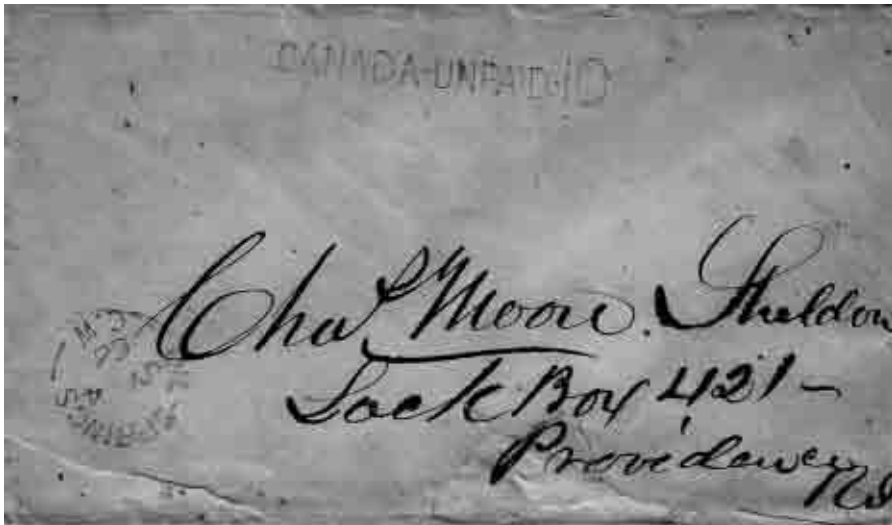 CANADA-UNPAID 10
Chas Moore. Sheldon
Lock Box 421-
Providence
R.I
C.W